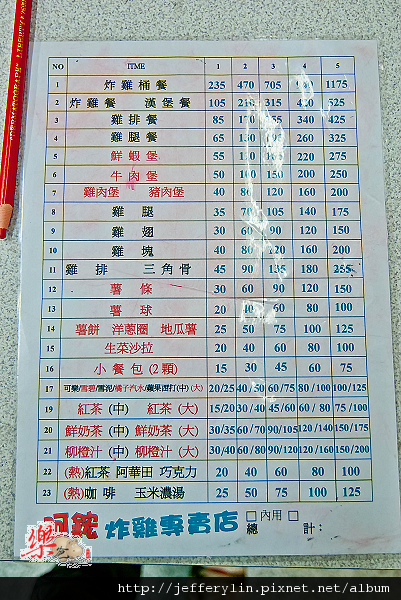 NO ITME 1 2 3 4 5
1 炸雞桶餐 235 470 705 1175
2 炸雞餐 漢堡餐 105 210 315 420 525
3 雞排餐 85 340 425
4 雞腿餐 65 260 325
5 鮮蝦堡 55 220 275
6 牛肉堡 50 100 150 200 250
7 雞肉堡 豬肉堡 40 80 120 160 200
8 雞腿 35 70 105 140 175
9 雞翅 30 60 90 120 150
10 雞塊 40 80 120 160 200
11 雞排 三角骨 45 90 135 180 255
12 薯條 30 60 90 120 150
13 薯球 20 40 60 80 100
14 薯餅 洋蔥圈 地瓜薯 25 50 75 100 125
15 生菜沙拉 20 40 60 80 100
16 小餐包(2顆) 15 30 45 60 75
17 可樂/雪碧/雪泥/橘子汽水/蘋果西打(中)(大) 20/25 40/50 60/75 80/100 100/125
19 紅茶(中) 紅茶(大) 15/20 30/40 45/60 60/80 75/100
20 鮮奶茶(中) 鮮奶茶(大) 30/35 60/70 90/105 120/140 150/175
21 柳橙汁(中) 柳橙汁(大) 30/40 60/80 90/120 120/160 150/200
22 (熱)紅茶 阿華田 巧克力 20 40 60 80 100
23 (熱)咖啡 玉米濃湯 25 50 75 100 125
炸雞專賣店
□內用 □
總 計:
樂
http://jefferylin.pixnet.net/album